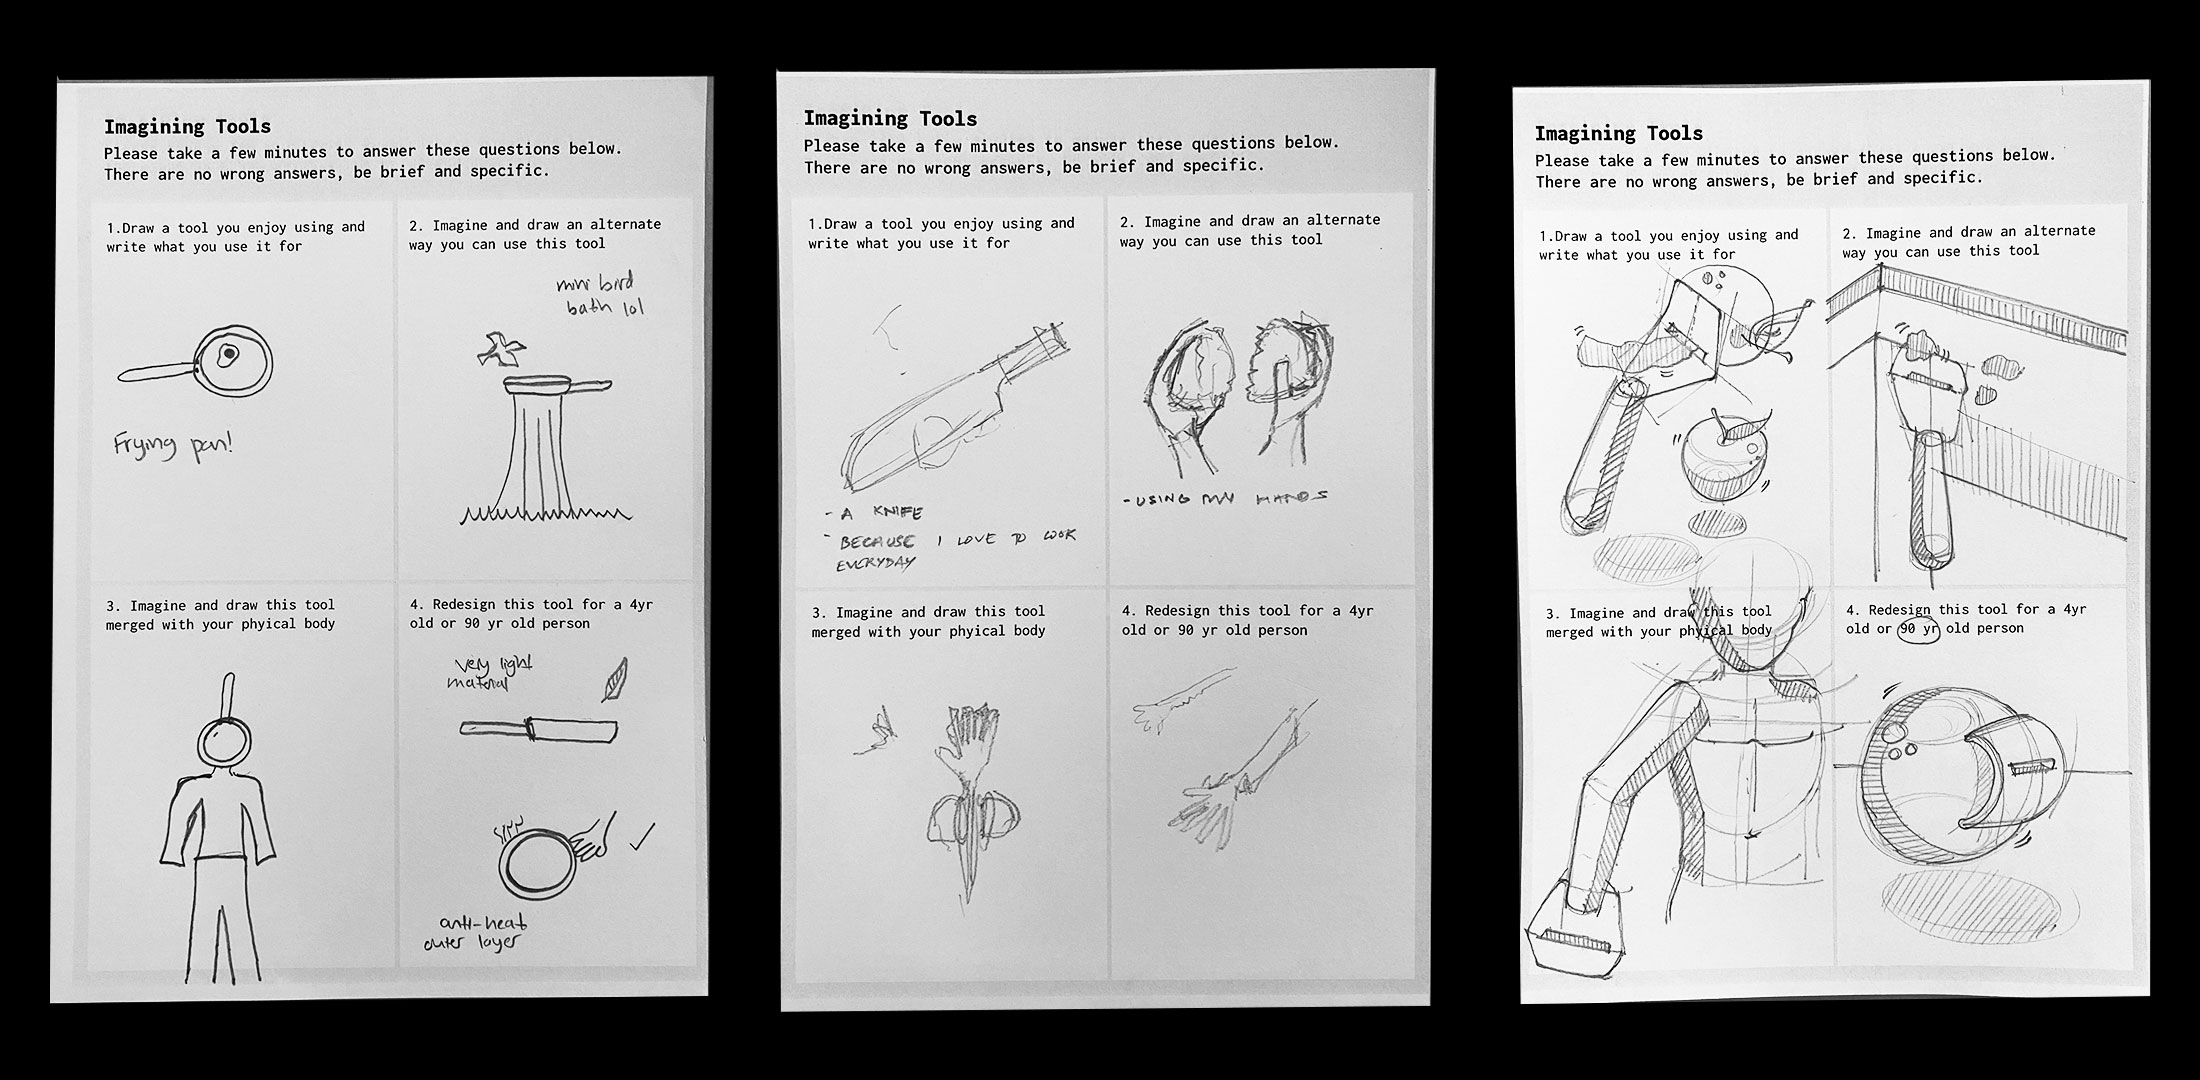 Imagining Tools
Please take a few minutes to answer these questions below.
There are no wrong answers, be brief and specific.
1.Draw a tool you enjoy using and
write what you use it for
Frying pan!
2. Imagine and draw an alternate
way you can use this tool
mini bird
bath lol
3. Imagine and draw this tool
merged with your phyical body
4. Redesign this tool for a 4yr
old or 90 yr old person
very light
material
anti-heat
outer layer
Imagining Tools
Please take a few minutes to answer these questions below.
There are no wrong answers, be brief and specific.
1.Draw a tool you enjoy using and
write what you use it for
- A KNIFE
- BECAUSE I LOVE TO COOK
EVERYDAY
2. Imagine and draw an alternate
way you can use this tool
- USING MY HANDS
3. Imagine and draw this tool
merged with your phyical body
4. Redesign this tool for a 4yr
old or 90 yr old person
Imagining Tools
Please take a few minutes to answer these questions below.
There are no wrong answers, be brief and specific.
1.Draw a tool you enjoy using and
write what you use it for
2. Imagine and draw an alternate
way you can use this tool
3. Imagine and draw this tool
merged with your phyical body
4. Redesign this tool for a 4yr
old or 90 yr old person